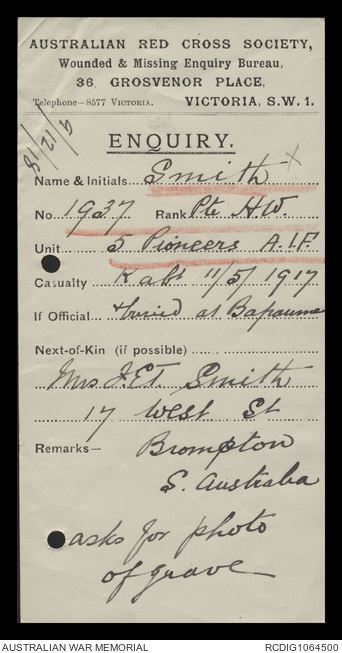 AUSTRALIAN RED CROSS SOCIETY,
Wounded & Missing Enquiry Bureau,
36, GROSVENOR PLACE,
Telephone—8577 VICTORIA. VICTORIA, S.W. 1.
9/12/18
ENQUIRY.
Name & Initials Smith x
No. 1937 Rank Pte H.W.
Unit 5 Pioneers A.I.F
Casualty K abt 11/5/1917
If Official & buried at Bapaume
Next-of-Kin (if possible)
Mrs. Smith
17 West St
Remarks— Brompton
S. Australia
asks for photo
of grave
AUSTRALIAN WAR MEMORIAL RCDIG1064500